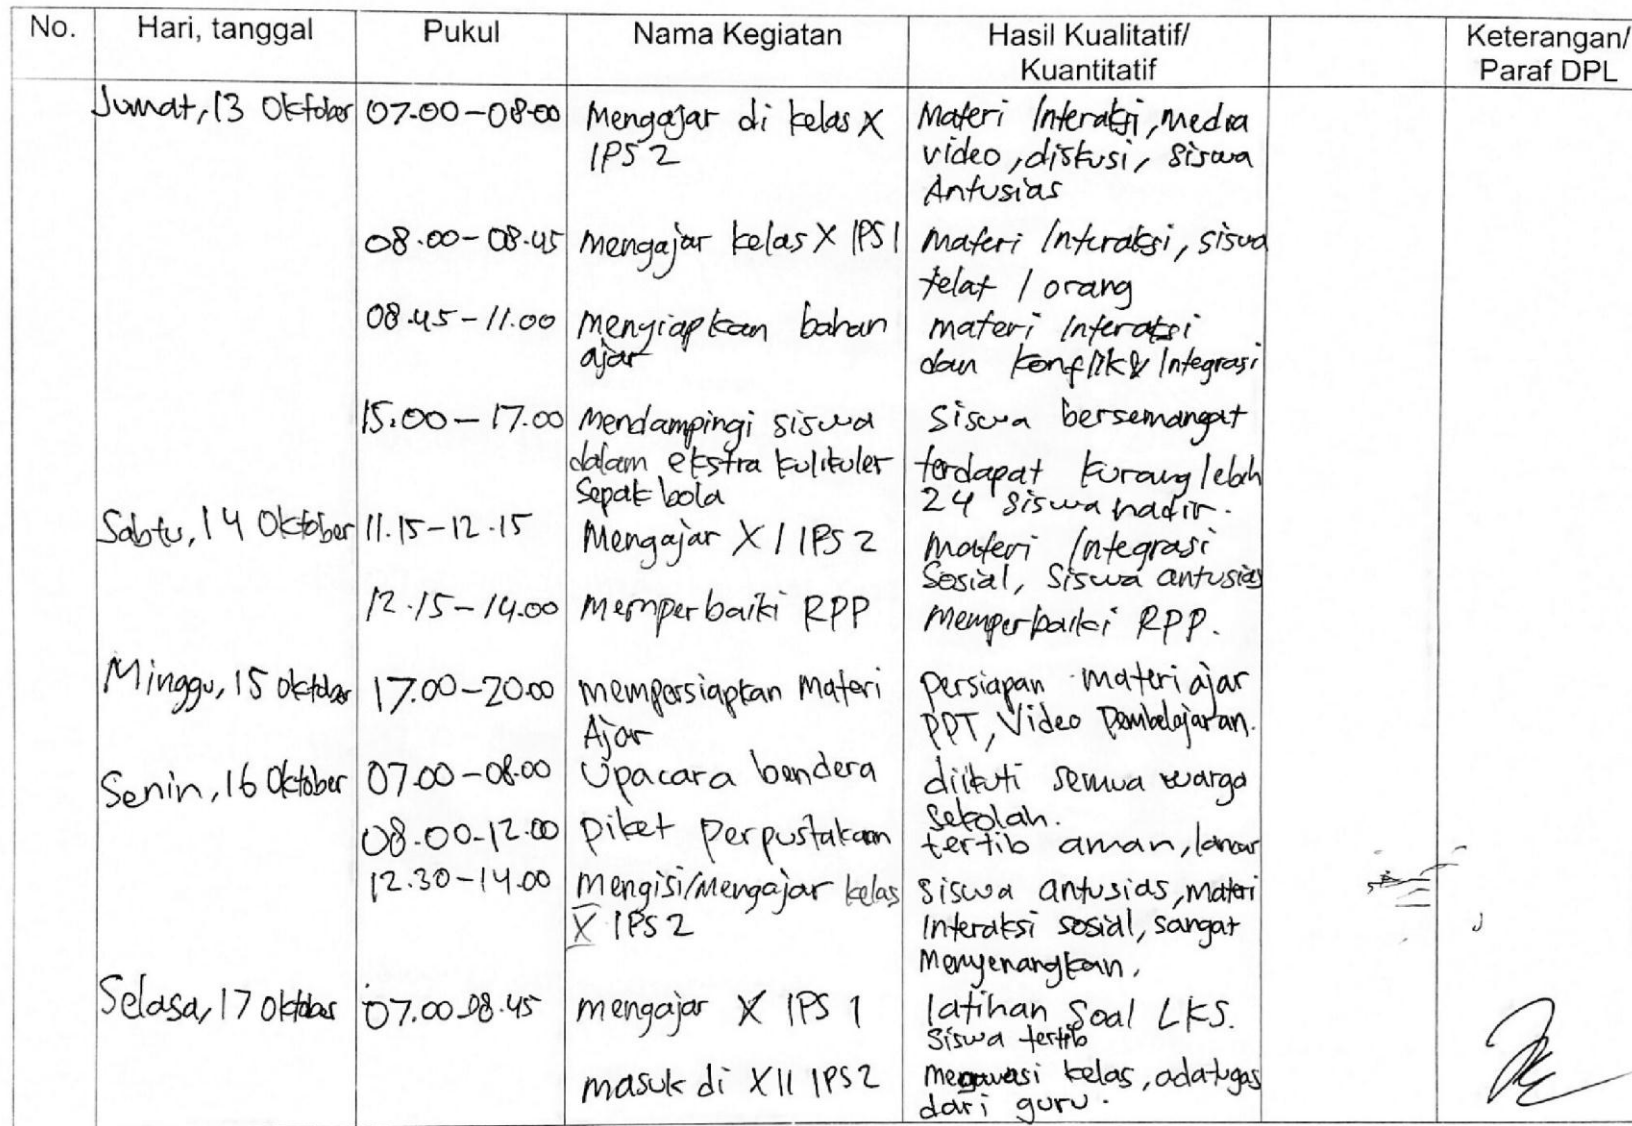 No. Hari, tanggal Pukul Nama Kegiatan Hasil Kualitatif/ Keterangan/
Kuantitatif Paraf DPL
Jumat, 13 Oktober 07.00-08.00 Mengajar di kelas X Materi Interaksi, media
IPS 2 video, diskusi, siswa
Antusias
08.00-08.45 mengajar kelas X IPS 1 materi Interaksi, siswa
telat 1 orang
08.45-11.00 menyiapkan bahan materi Interaksi
ajar dan konflik & Integrasi
15.00-17.00 Mendampingi siswa siswa bersemangat
dalam ekstra kulikuler terdapat kurang lebih
Sepak bola 24 siswa hadir.
Sabtu, 14 Oktober 11.15-12.15 Mengajar XI IPS 2 materi Integrasi
Sosial, siswa antusias
12.15-14.00 memperbaiki RPP memperbaiki RPP.
Minggu, 15 Oktober 17.00-20.00 mempersiapkan materi persiapan materi ajar
Ajar PPT, Video Pembelajaran.
Senin, 16 Oktober 07.00-08.00 Upacara bendera diikuti semua warga
sekolah.
08.00-12.00 piket perpustakaan tertib aman, lancar
12.30-14.00 Mengisi/Mengajar kelas siswa antusias, materi
X IPS 2 Interaksi sosial, sangat
Menyenangkan.
Selasa, 17 Oktober 07.00-08.45 mengajar X IPS 1 latihan Soal LKS.
Siswa tertib
masuk di XII IPS 2 mengawasi kelas, ada tugas
dari guru.